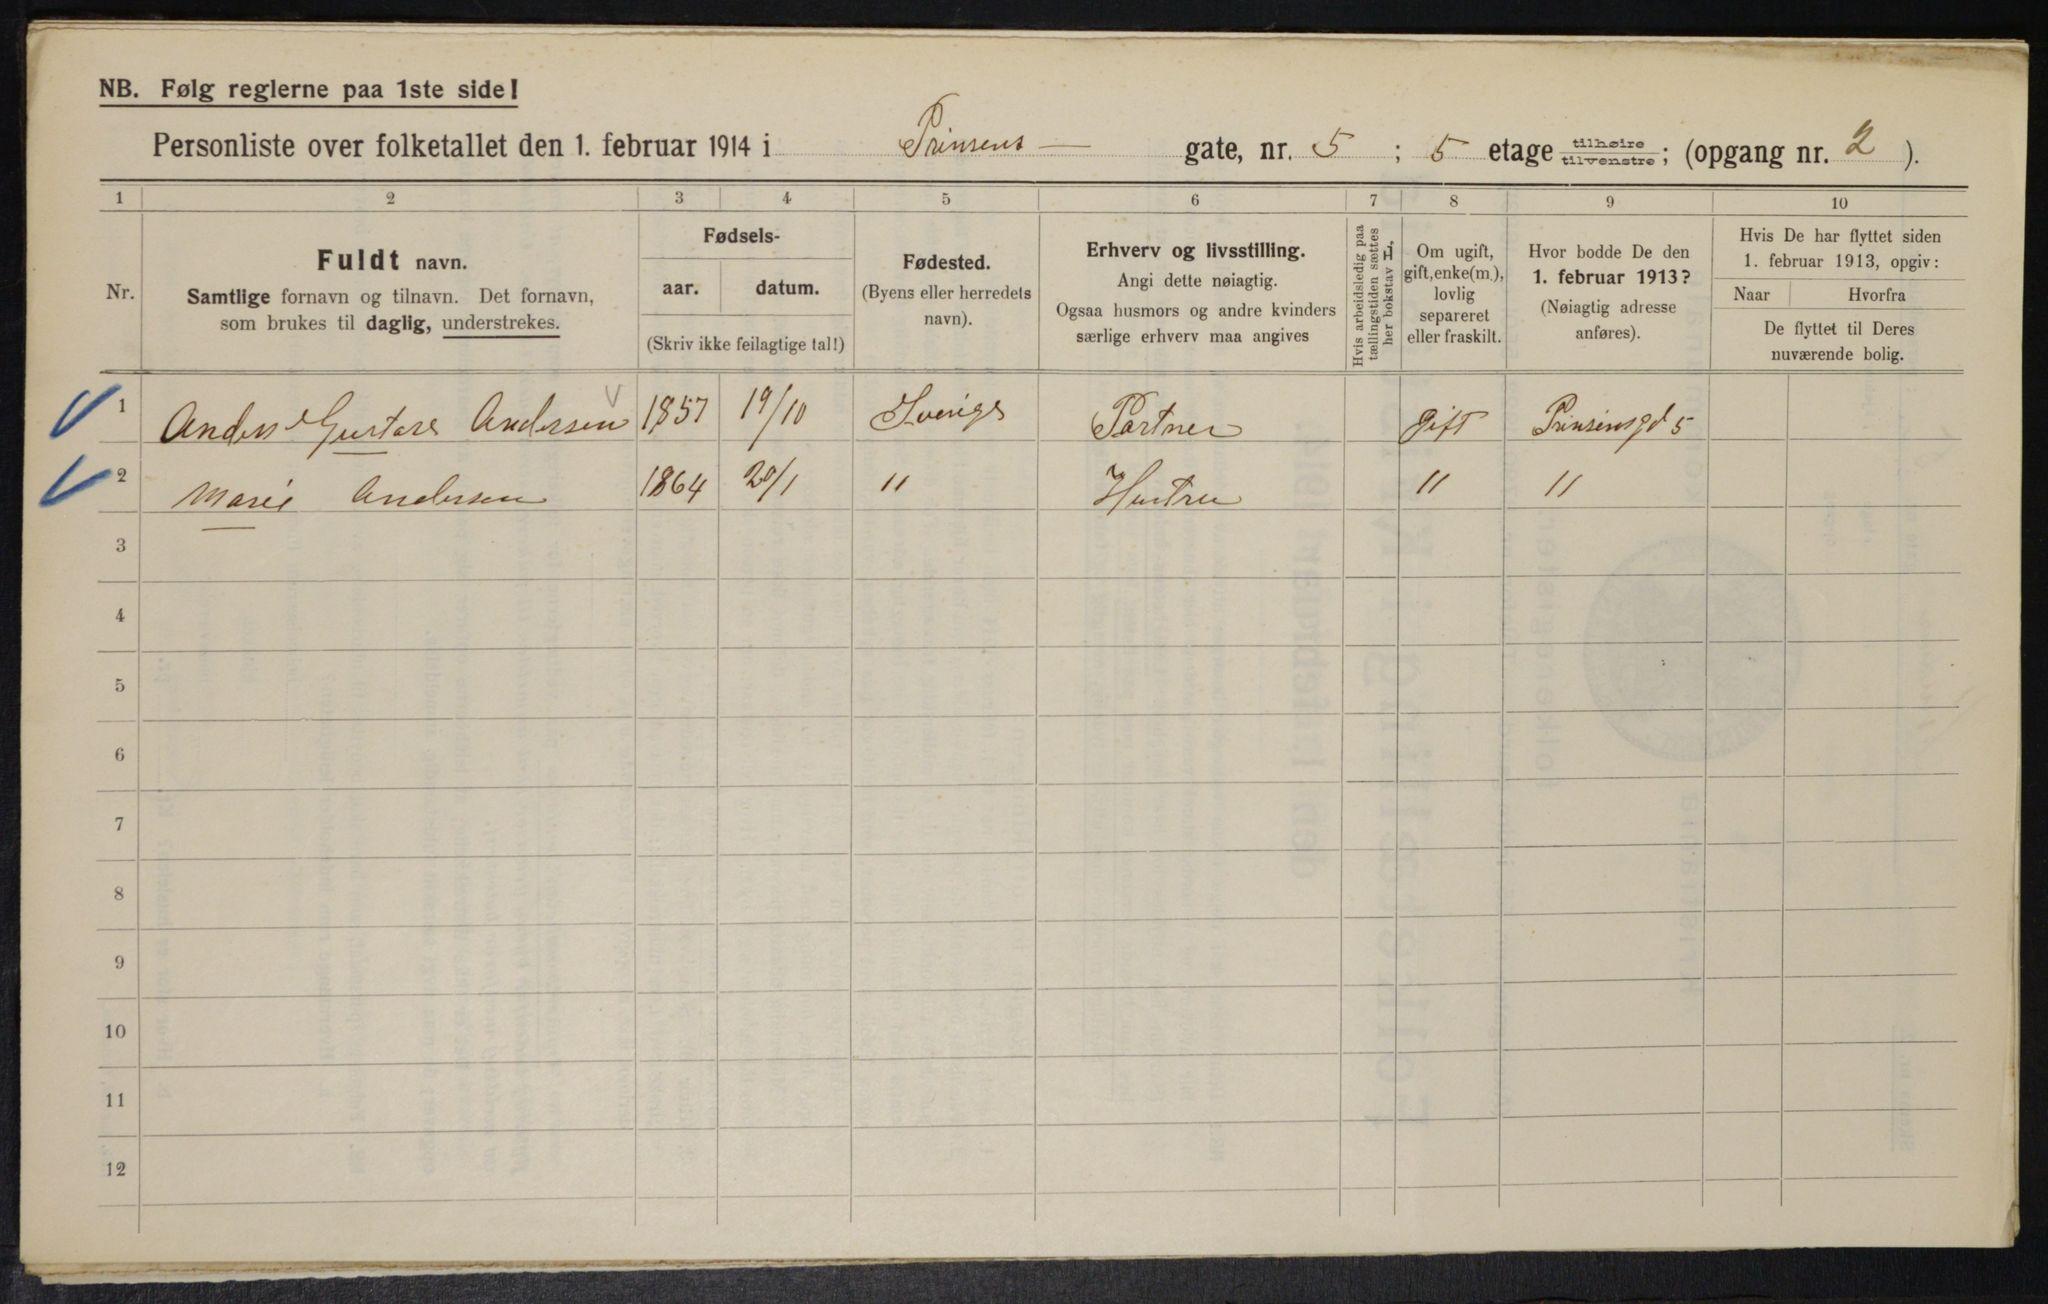 NB. Følg reglerne paa 1ste side!
Personliste over folketallet den 1. februar 1914 i Prinsens gate, nr. 5 ; 5 etage tilhøire tilvenstre ; (opgang nr. 2 ).
1 2 3 4 5 6 7 8 9 10
Nr.
Fuldt navn.
Samtlige fornavn og tilnavn. Det fornavn,
som brukes til daglig, understrekes.
Fødsels-
aar. datum.
(Skriv ikke feilagtige tal!)
Fødested.
(Byens eller herredets
navn).
Erhverv og livsstilling.
Angi dette nøiagtig.
Ogsaa husmors og andre kvinders
særlige erhverv maa angives
Hvis arbeidsledig paa
tællingstiden sættes
her bokstav L.
Om ugift,
gift, enke(m.),
lovlig
separeret
eller fraskilt.
Hvor bodde De den
1. februar 1913?
(Nøiagtig adresse
anføres).
Hvis De har flyttet siden
1. februar 1913, opgiv:
Naar Hvorfra
De flyttet til Deres
nuværende bolig.
1 Anders Gustav Andersen 1857 19/10 Sverige Portner gift Prinsensgd 5
2 Marie Andersen 1864 20/1 " Hustru " "
3
4
5
6
7
8
9
10
11
12